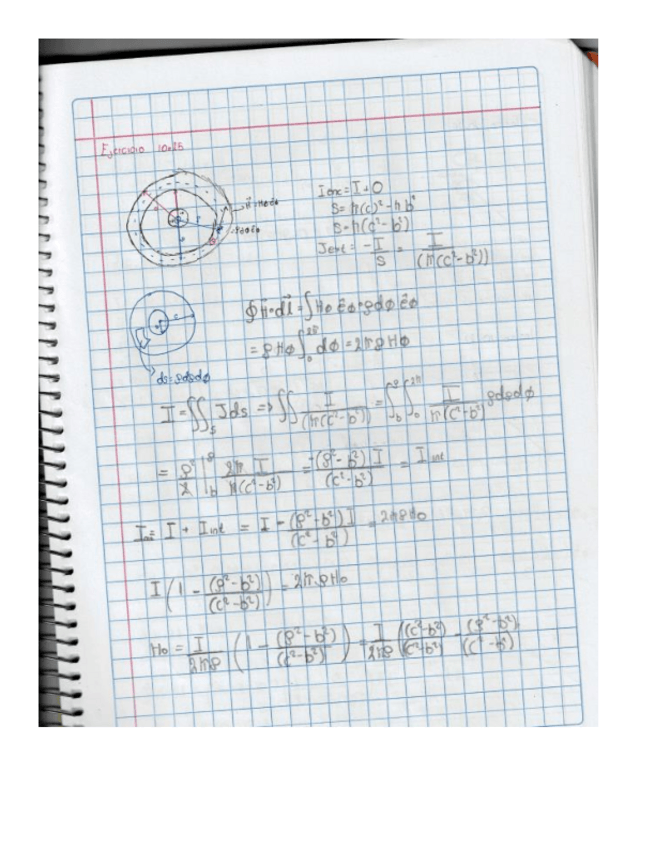 Ejercicio 10.25
I enc = I + 0
S = π(c)² - π b²
S = π(c² - b²)
J ext = -I/S = I/(π(c² - b²))
∮ H⃗ • dl⃗ = ∫ HΦ êΦ • ρdΦ êΦ
= ρ HΦ ∫₀^2π dΦ = 2πρ HΦ
ds = ρdρdΦ
I = ∬s J ds => ∬ I/(π(c² - b²)) = ∫b^ρ ∫₀^2π I/(π(c² - b²)) ρdρdΦ
= ρ²/2 |b^ρ 2π I/(π(c² - b²)) = -(ρ² - b²) I/(c² - b²) = I int
= I + I int = I - (ρ² - b²) I/(c² - b²) = 2πρ HΦ
I (1 - (ρ² - b²)/(c² - b²)) = 2π ρ HΦ
HΦ = I/2πρ (1 - (ρ² - b²)/(c² - b²)) = I/2πρ ((c² - b²)/(c² - b²) - (ρ² - b²)/(c² - b²))